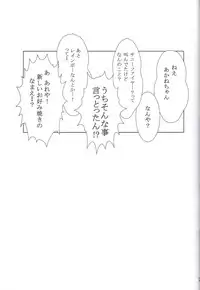 ねえ
あかねちゃん
なんや?
サニーファイヤーって
叫んでたけど
なんのこと?
うちそんな事
言っとったん!?
あと
レインボーなんとかー
ってー
あ あれや!
新しいお好み焼きの
なまえー?